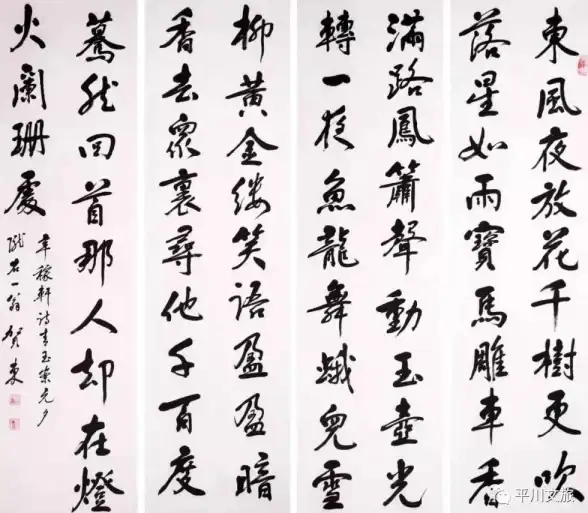 東風夜放花千樹更吹
落星如雨寶馬雕車香
滿路鳳簫聲動玉壺光
轉一夜魚龍舞蛾兒雪
柳黃金縷笑語盈盈暗
香去衆裏尋他千百度
驀然回首那人却在燈
火闌珊處
辛稼軒詩青玉案元夕
隴右一翁賀東
平川文旅